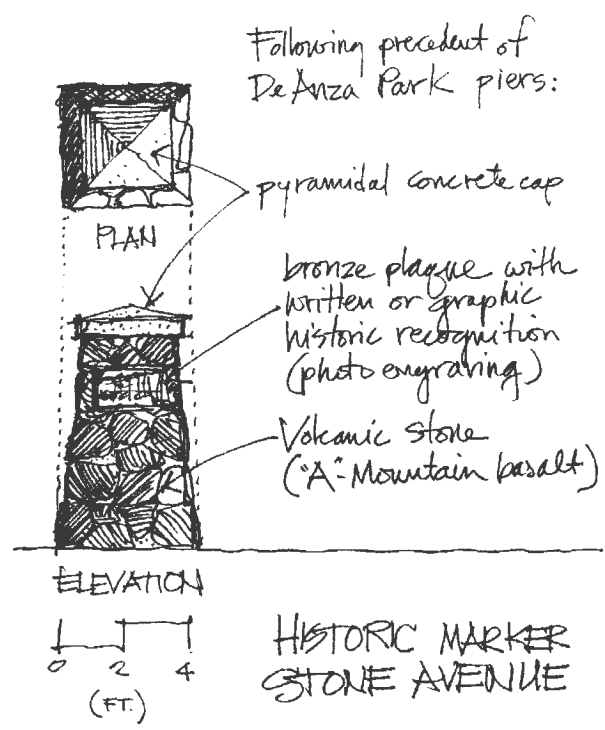 Following precedent of
De Anza Park piers:
pyramidal concrete cap
PLAN
bronze plaque with
written or graphic
historic recognition
(photo engraving)
Volcanic stone
("A"-Mountain basalt)
ELEVATION
0 2 4
(FT.)
HISTORIC MARKER
STONE AVENUE